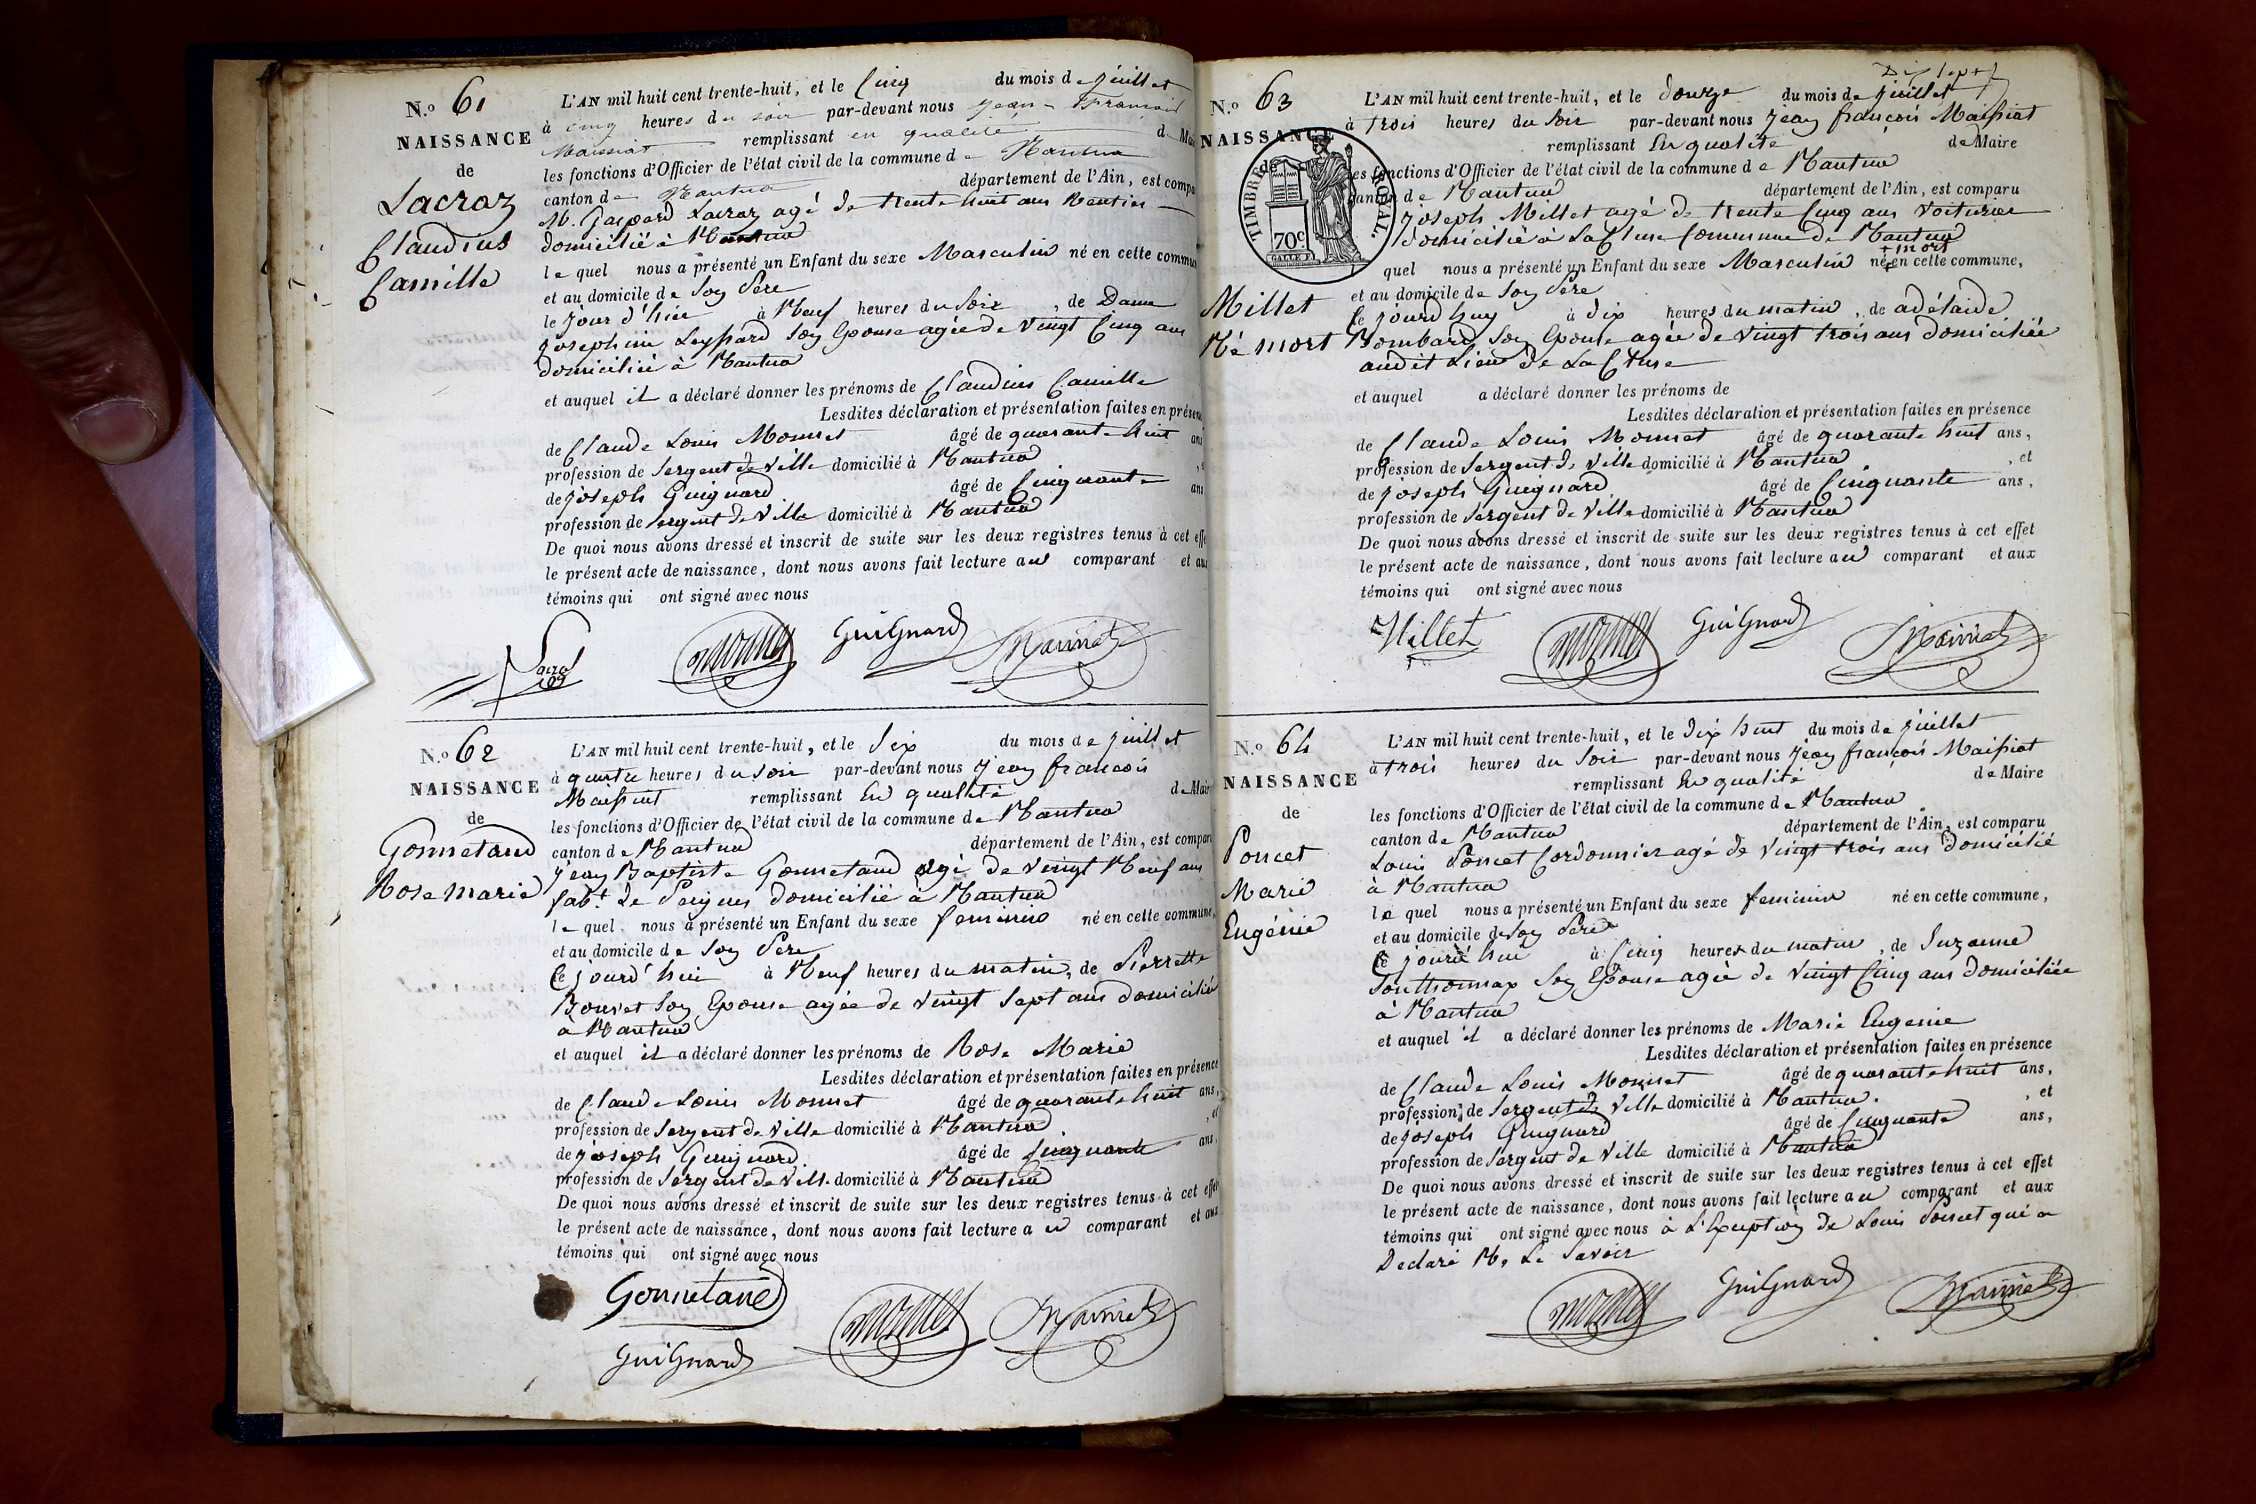 N.o 61
NAISSANCE
de
Lacroz
Claudius
Camille
L'AN mil huit cent trente-huit, et le Cinq du mois de Juillet
à cinq heures du soir par-devant nous Jean-François
Maissiat remplissant en qualité de Mai
les fonctions d'Officier de l'état civil de la commune de Nantua
canton de Nantua département de l'Ain, est compa
M. Gaspard Lacroz agé de trente huit ans Rentier
domicilié à Nantua
le quel nous a présenté un Enfant du sexe Masculin né en cette commun
et au domicile de Son Père
le jour d'hier à Neuf heures du Soir, de Dame
Josephine Leyssard Son Epouse agée de Vingt Cinq ans
domiciliée à Nantua
et auquel il a déclaré donner les prénoms de Claudius Camille
Lesdites déclaration et présentation faites en présenc
de Claude Louis Monnet âgé de quarante huit ans
profession de Sergent de Ville domicilié à Nantua
de Joseph Guignard âgé de Cinquante ans
profession de Sergent de Ville domicilié à Nantua
De quoi nous avons dressé et inscrit de suite sur les deux registres tenus à cet effe
le présent acte de naissance, dont nous avons fait lecture au comparant et aux
témoins qui ont signé avec nous
Monnet GuiGnard Maissiat
N.o 62
NAISSANCE
de
Gonnetand
Rose Marie
L'AN mil huit cent trente-huit, et le Six du mois de Juillet
à quatre heures du Soir par-devant nous Jean françois
Maissiat remplissant En qualité de Mair
les fonctions d'Officier de l'état civil de la commune de Nantua
canton de Nantua département de l'Ain, est compar
Jean Baptiste Gonnetand agé de Vingt Neuf ans
fab.t de Peignes domicilié à Nantua
le quel nous a présenté un Enfant du sexe feminin né en cette commune,
et au domicile de Son Père
Ce jourd'hui à Neuf heures du matin, de Pierrette
Bouvet Son Epouse agée de Vingt Sept ans domiciliée
à Nantua
et auquel il a déclaré donner les prénoms de Rose Marie
Lesdites déclaration et présentation faites en présence
de Claude Louis Monnet âgé de quarante huit ans,
profession de Sergent de Ville domicilié à Nantua, et
de Joseph Guignard âgé de Cinquante ans,
profession de Sergent de Ville domicilié à Nantua
De quoi nous avons dressé et inscrit de suite sur les deux registres tenus à cet effet
le présent acte de naissance, dont nous avons fait lecture au comparant et aux
témoins qui ont signé avec nous
Gonnetand Monnet Maissiat
GuiGnard
N.o 63
NAISSANCE
de
TIMBRE ROYAL.
70c
Millet
Né mort
Dix sept
L'AN mil huit cent trente-huit, et le douze du mois de Juillet
à trois heures du Soir par-devant nous Jean françois Maissiat
remplissant En qualité de Maire
les fonctions d'Officier de l'état civil de la commune de Nantua
canton de Nantua département de l'Ain, est comparu
Joseph Millet agé de trente Cinq ans Voiturier
domicilié à La Cluse Commune de Nantua
+ mort
quel nous a présenté un Enfant du sexe Masculin né + en cette commune,
et au domicile de Son Père
Ce jourd'huy à dix heures du matin, de adélaïde
Bombard Son Epouse agée de Vingt trois ans domiciliée
audit Lieu de La Cluse
et auquel a déclaré donner les prénoms de
Lesdites déclaration et présentation faites en présence
de Claude Louis Monnet âgé de quarante huit ans,
profession de Sergent de Ville domicilié à Nantua, et
de Joseph Guignard âgé de Cinquante ans,
profession de Sergent de Ville domicilié à Nantua
De quoi nous avons dressé et inscrit de suite sur les deux registres tenus à cet effet
le présent acte de naissance, dont nous avons fait lecture au comparant et aux
témoins qui ont signé avec nous
Millet Monnet GuiGnard Maissiat
N.o 64
NAISSANCE
de
Poncet
Marie
Eugénie
L'AN mil huit cent trente-huit, et le Dix huit du mois de Juillet
à trois heures du Soir par-devant nous Jean françois Maissiat
remplissant En qualité de Maire
les fonctions d'Officier de l'état civil de la commune de Nantua
canton de Nantua département de l'Ain, est comparu
Louis Poncet Cordonnier agé de Vingt trois ans domicilié
à Nantua
le quel nous a présenté un Enfant du sexe feminin né en cette commune,
et au domicile de Son Père
Ce jourd'hui à Cinq heures du matin, de Suzanne
Son Epouse agée de Vingt Cinq ans domiciliée
à Nantua
et auquel il a déclaré donner les prénoms de Marie Eugenie
Lesdites déclaration et présentation faites en présence
de Claude Louis Monnet âgé de quarante huit ans,
profession de Sergent de Ville domicilié à Nantua, et
de Joseph Guignard âgé de Cinquante ans,
profession de Sergent de Ville domicilié à Nantua
De quoi nous avons dressé et inscrit de suite sur les deux registres tenus à cet effet
le présent acte de naissance, dont nous avons fait lecture au comparant et aux
témoins qui ont signé avec nous à L'Exception de Louis Poncet qui a
Declaré Ne Le Savoir
Monnet GuiGnard Maissiat